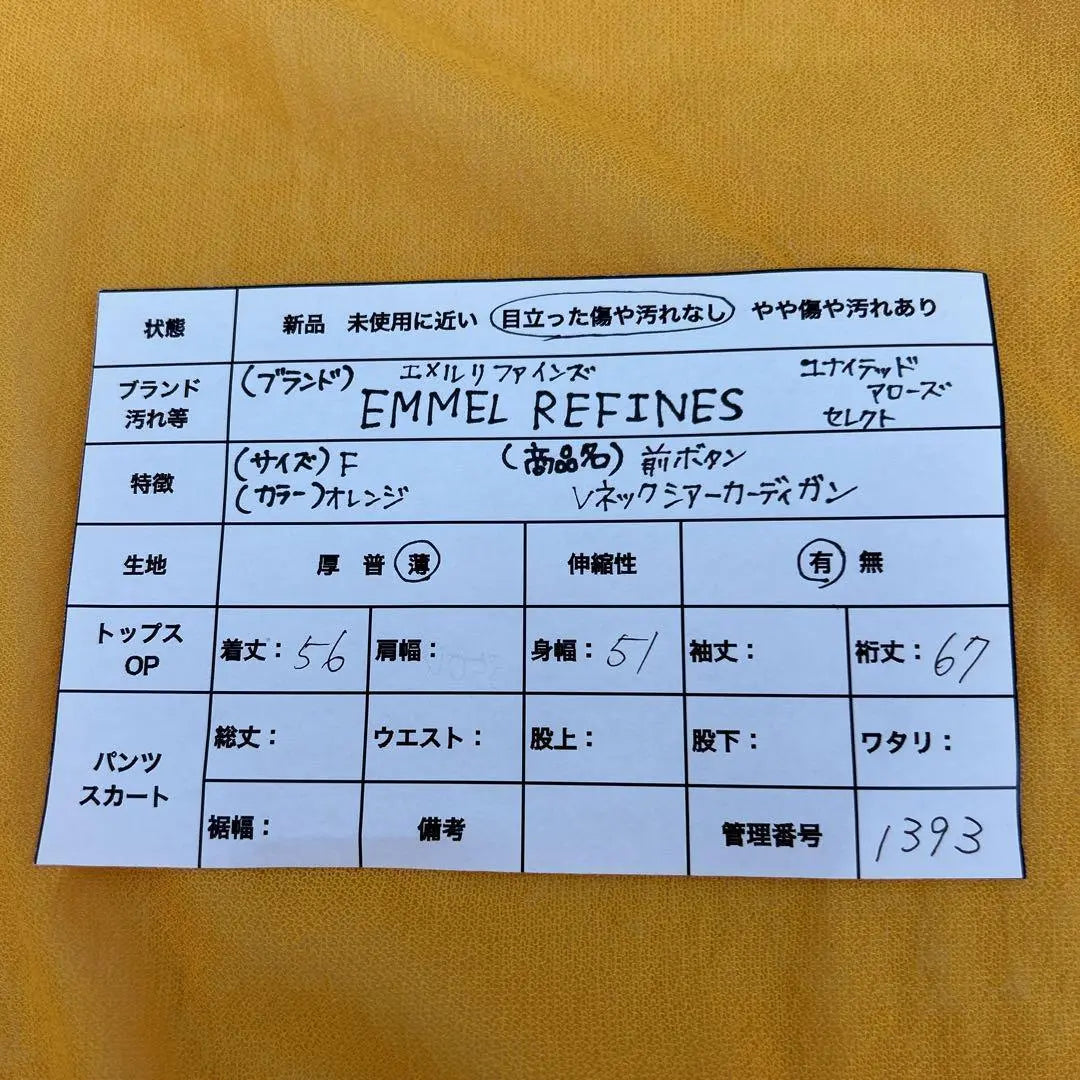 状態 新品 未使用に近い 目立った傷や汚れなし やや傷や汚れあり
ブランド 汚れ等 (ブランド) エメルリファインズ ユナイテッド
EMMEL REFINES アローズ
セレクト
特徴 (サイズ) F (商品名) 前ボタン
(カラー)オレンジ Vネックシアーカーディガン
生地 厚 普 薄 伸縮性 有 無
トップス OP 着丈: 56 肩幅: 身幅: 51 袖丈: 裄丈: 67
パンツ スカート 総丈: ウエスト: 股上: 股下: ワタリ:
裾幅: 備考 管理番号 1393